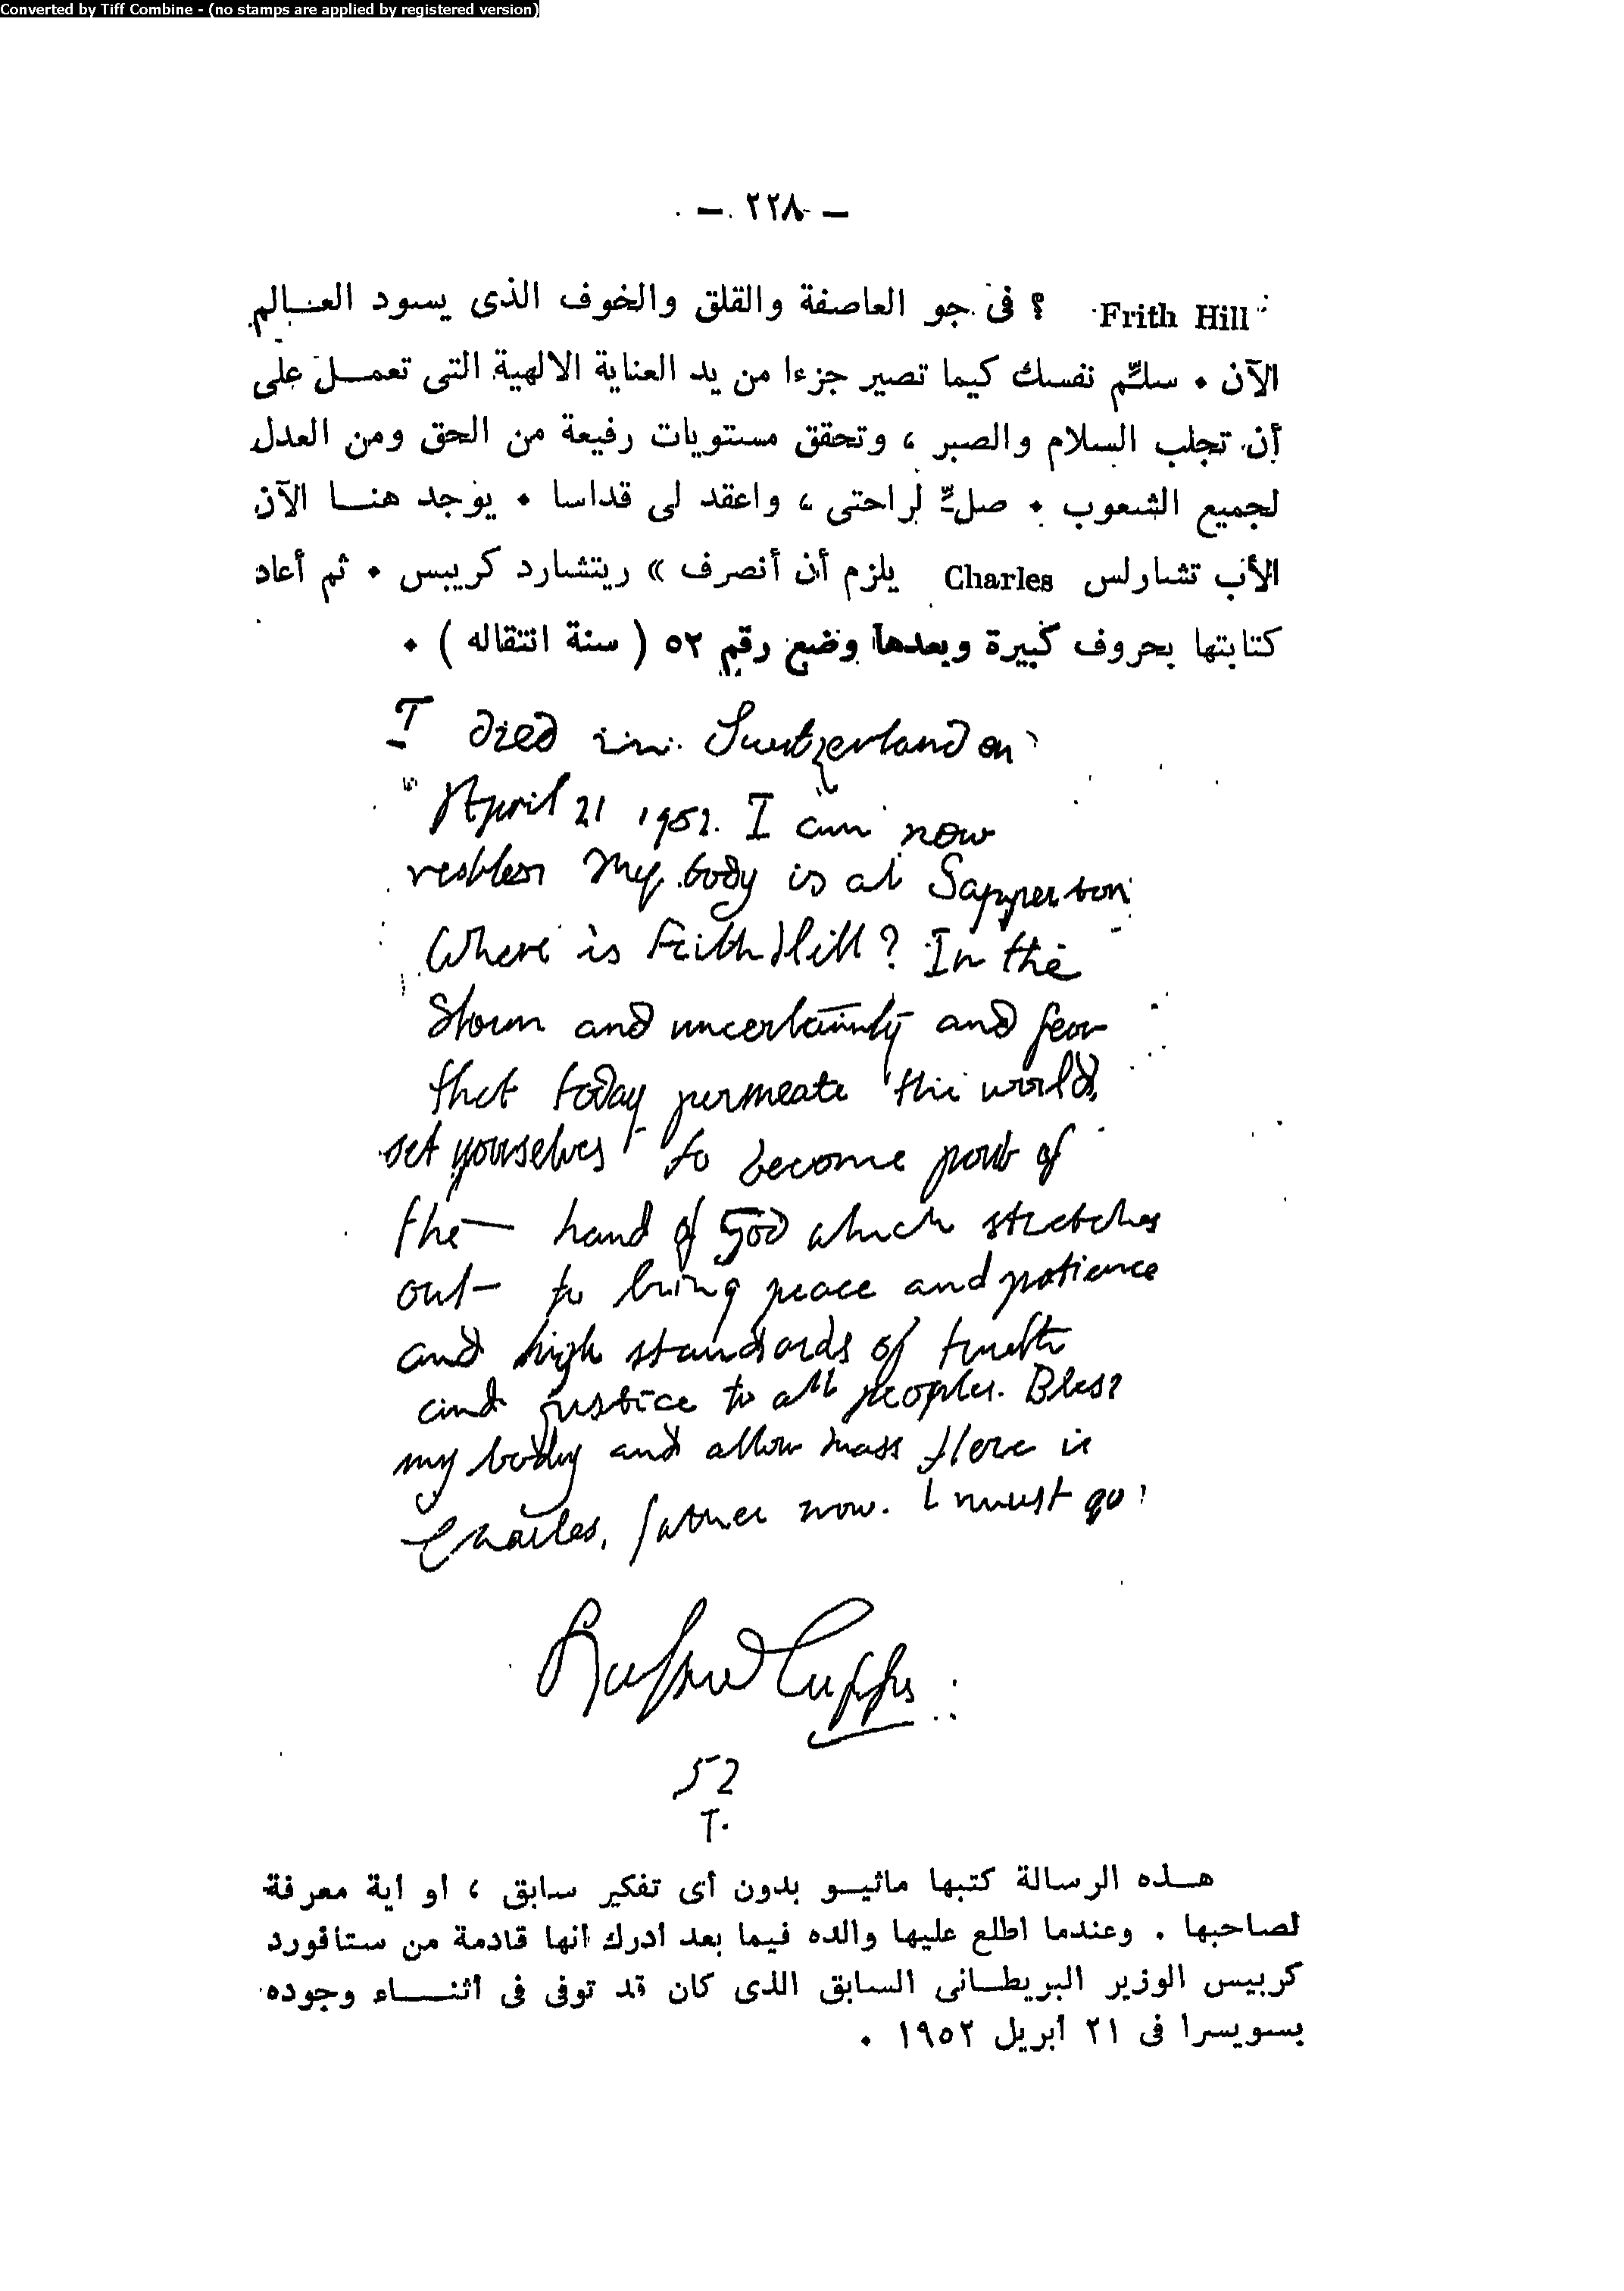 Converted by Tiff Combine - (no stamps are applied by registered version)
— ٢٢٨ —
Frith Hill ؟ فى جو العاصفة والقلق والخوف الذى يسود العـالم
الآن • سلّم نفسك كيما تصير جزءا من يد العناية الالهية التى تعمـل على
أن تجلب السلام والصبر ، وتحقق مستويات رفيعة من الحق ومن العدل
لجميع الشعوب • صلِّ لراحتى ، واعقد لى قداسا • يوجد هنـا الآن
الأب تشارلس Charles يلزم أن أنصرف » ريتشارد كريبس • ثم أعاد
كتابتها بحروف كبيرة وبعدها وضع رقم ٥٢ ( سنة انتقاله ) •
I died in Switzerland on
April 21 1952. I am now
restless My body is at Sapperton
Where is Frith Hill? In the
Storm and uncertainty and fear
that today permeate the world,
set yourselves to become part of
the hand of God which stretches
out to bring peace and patience
and high standards of truth
and justice to all peoples. Bless
my body and allow mass Here is
Charles, father now. I must go
52
T.
هـذه الرسالة كتبها ماثيـو بدون أى تفكير سابق ، او اية معرفة
لصاحبها . وعندما اطلع عليها والده فيما بعد أدرك انها قادمة من ستافورد
كريبس الوزير البريطـانى السابق الذى كان قد توفى فى أثنـاء وجوده
بسويسرا فى ٢١ أبريل ١٩٥٢ •